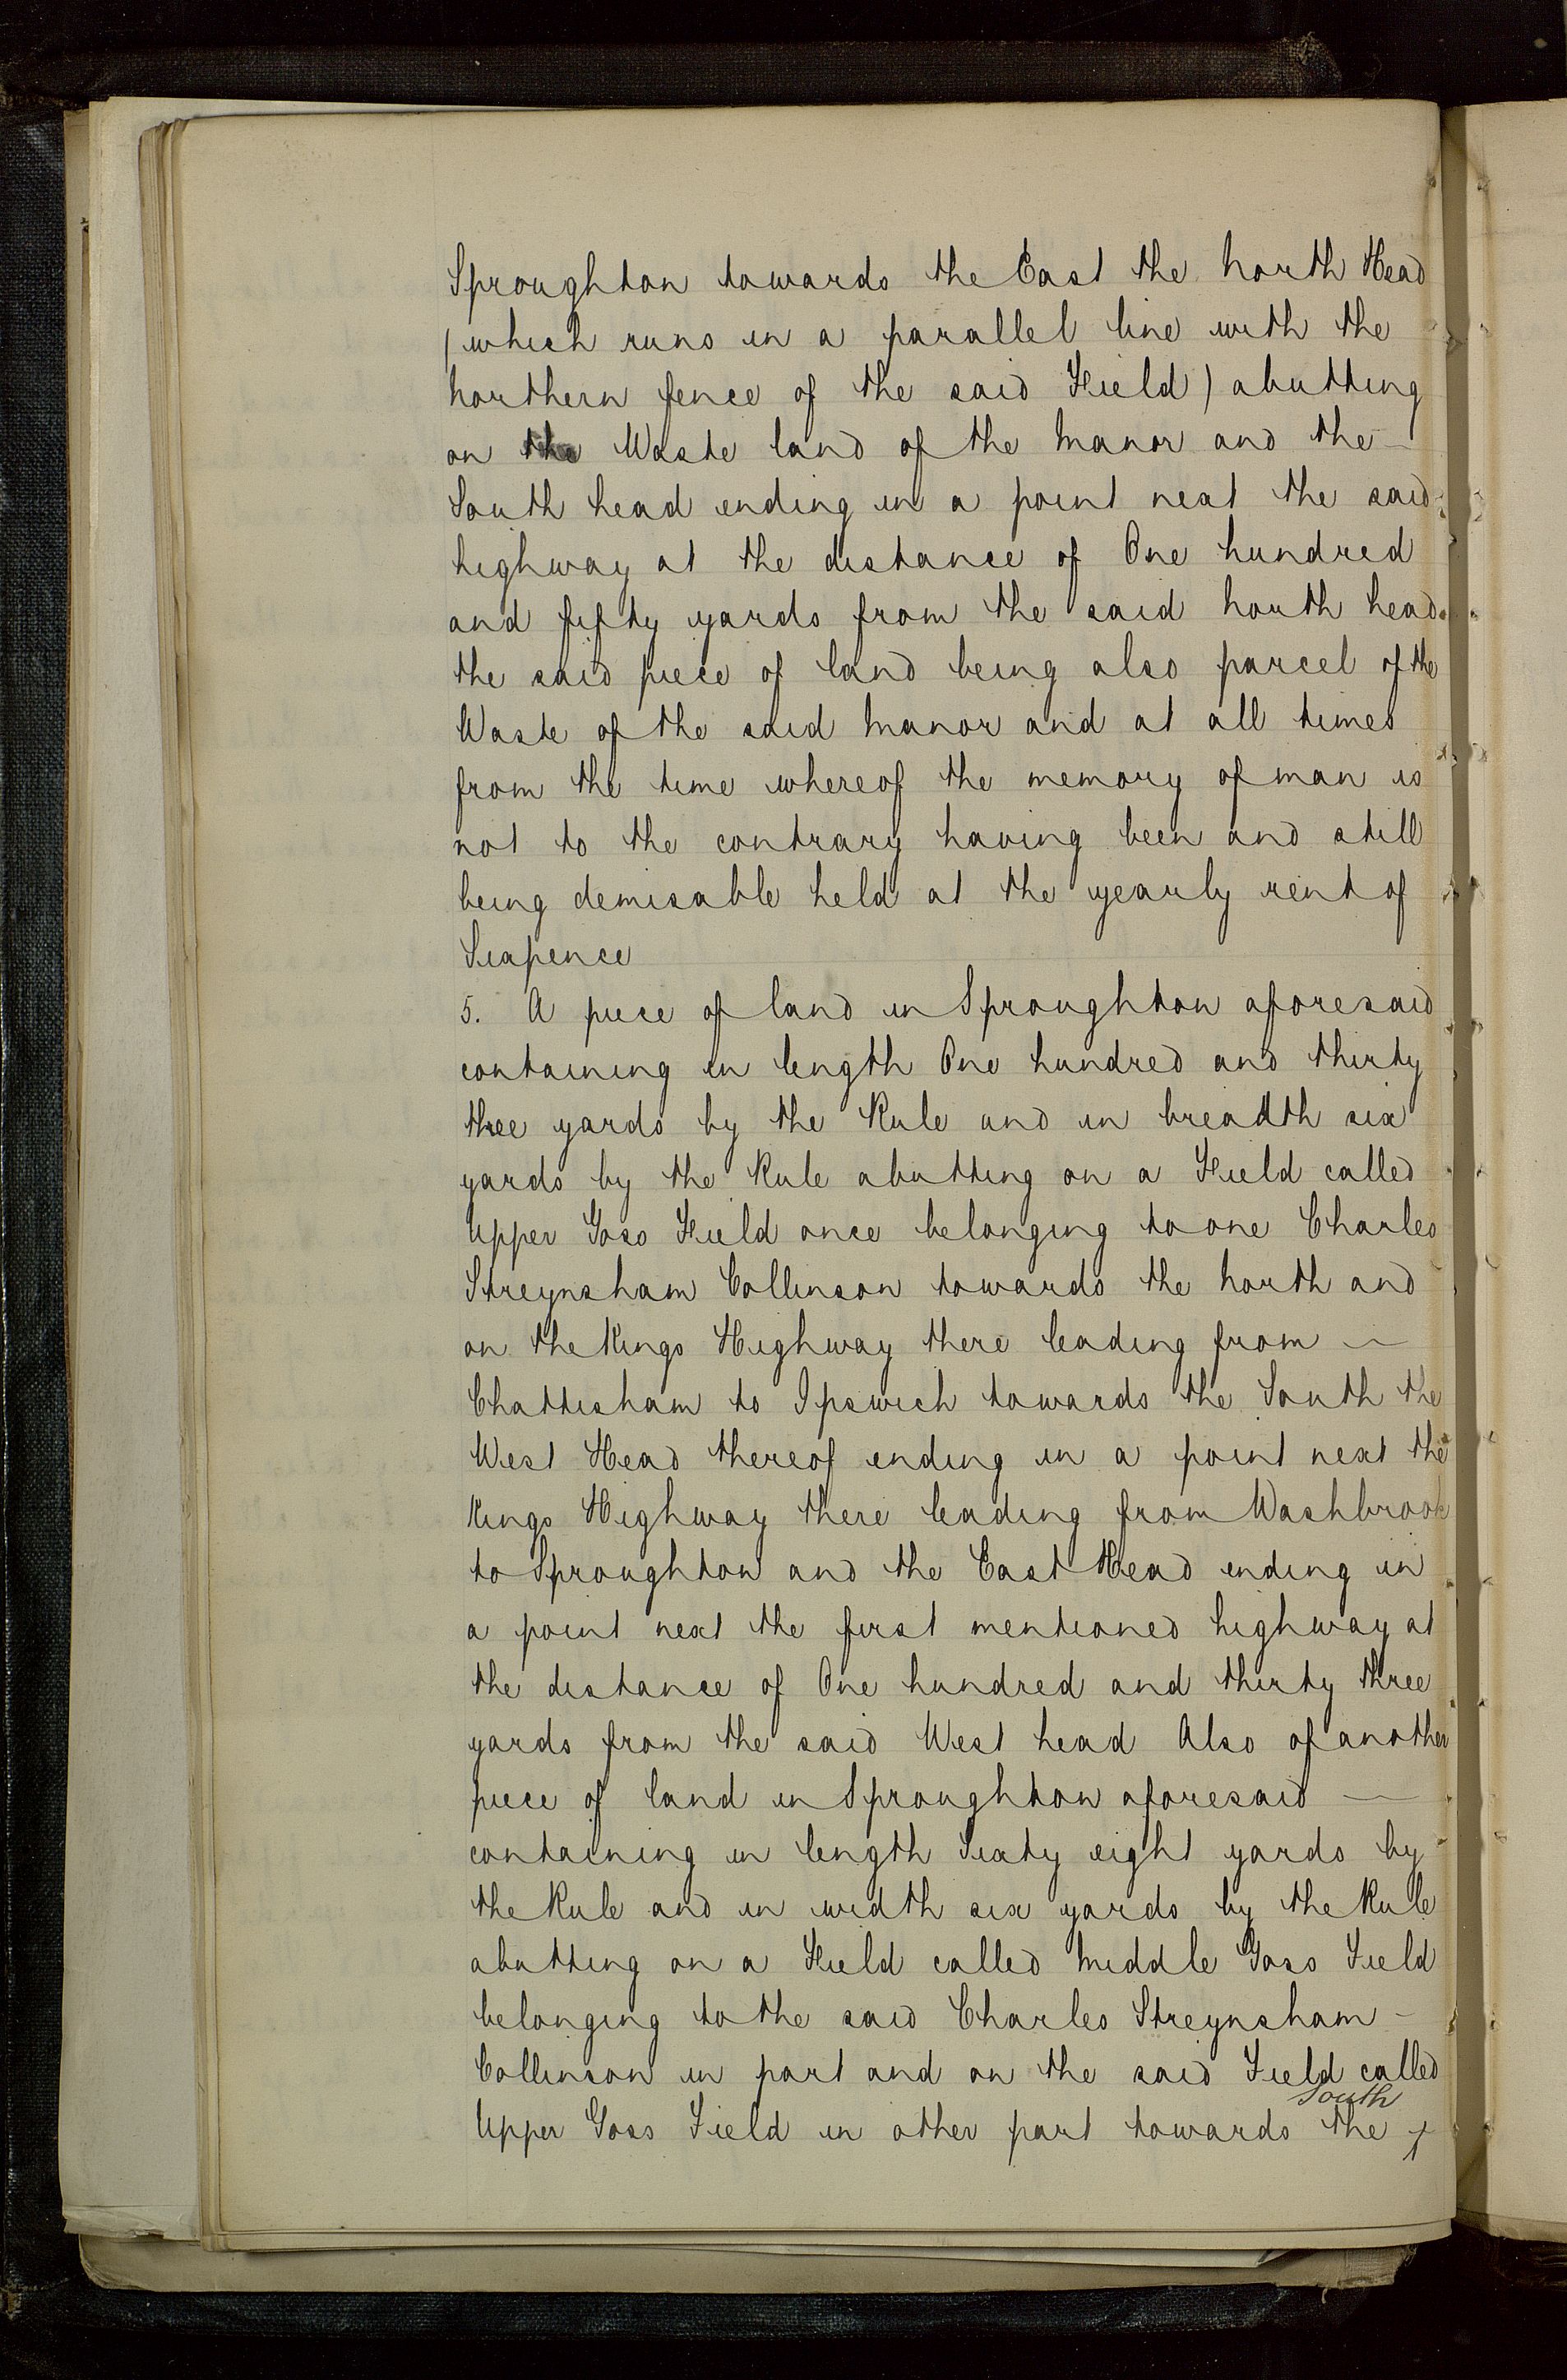 Sproughton towards the East the North Head
(which runs in a parallel line with the
Northern fence of the said Field) abutting
on the Waste land of the Manor and the
South head ending in a point next the said
highway at the distance of One hundred
and fifty yards from the said North head
the said piece of land being also parcel of the
Waste of the said Manor and at all times
from the time whereof the memory of man is
not to the contrary having been and still
being demisable held at the yearly rent of
Sixpence
5. A piece of land in Sproughton aforesaid
containing in length One hundred and thirty
three yards by the Rule and in breadth six
yards by the Rule abutting on a Field called
Upper Goss Field once belonging to one Charles
Streynsham Collinson towards the North and
on the Kings Highway there leading from
Chattisham to Ipswich towards the South the
West Head thereof ending in a point next the
Kings Highway there leading from Washbrook
to Sproughton and the East Head ending in
a point next the first mentioned highway at
the distance of One hundred and thirty three
yards from the said West head Also of another
piece of land in Sproughton aforesaid
containing in length Sixty eight yards by
the Rule and in width six yards by the Rule
abutting on a Field called Middle Goss Field
belonging to the said Charles Streynsham
Collinson in part and on the said Field called
South
Upper Goss Field in other part towards the x